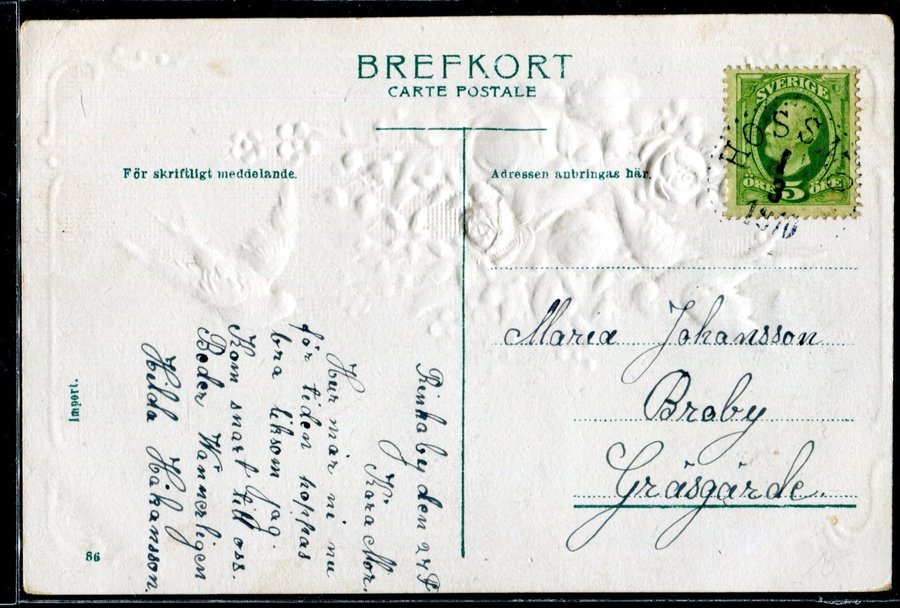 BREFKORT
CARTE POSTALE
SVERIGE
ÖRE 5 ÖRE
1
3
För skriftligt meddelande.
Adressen anbringas här.
Maria Johansson
Braby
Gräsgärde.
Rinkaby den 27
Kära Mor.
Hur mår ni nu
för tiden hoppas
bra liksom jag.
Kom snart till oss.
Beder Wännerligen
Hilda Håkansson.
Import.
86